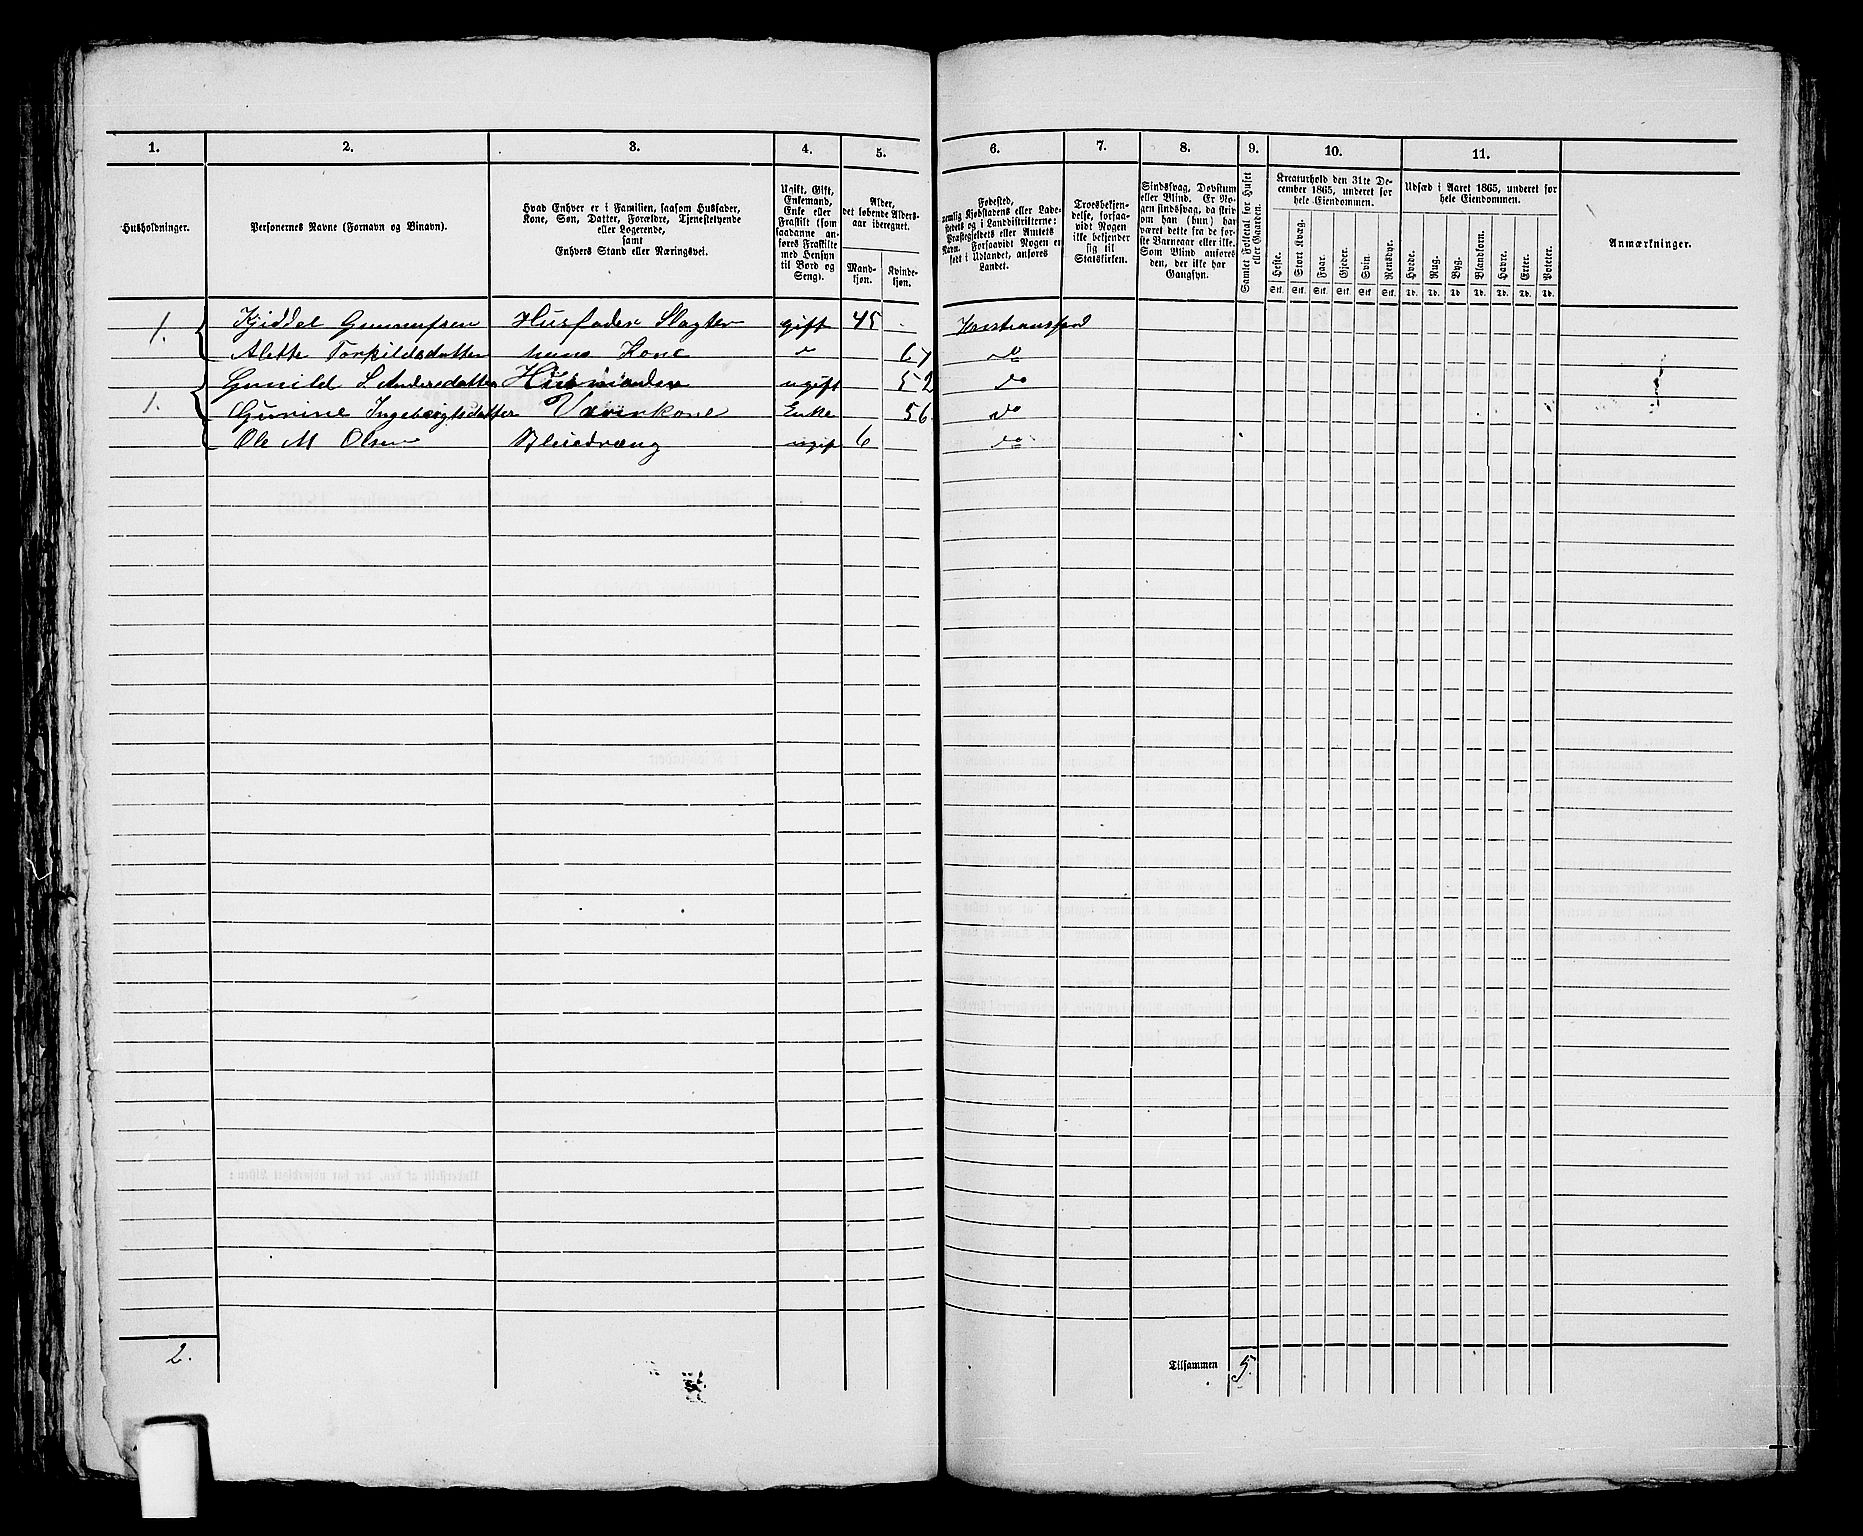 1. 2. 3. 4. 5. 6. 7. 8. 9. 10. 11.
Husholdninger.
Personernes Navne (Fornavn og Binavn).
Hvad Enhver er i Familien, saasom Husfader,
Kone, Søn, Datter, Forældre, Tjenestetyende
eller Logerende,
samt
Enhvers Stand eller Næringsvei.
Ugift, Gift,
Enkemand,
Enke eller
Fraskilt (som
saadanne an-
føres Fraskilte
med Hensyn
til Bord og
Seng).
Alder,
det løbende Alders-
aar iberegnet.
Mand-
kjøn.
Kvinde-
kjøn.
Fødested,
nemlig Kjøbstadens eller Lade-
stedets og i Landdistrikterne:
Præstegjeldets eller Annexets
Navn. Forsaavidt Nogen er
født i Udlandet, anføres
Landet.
Troesbekjen-
delse, forsaa-
vidt Nogen
ikke bekjender
sig til
Statskirken.
Sindssvag, Døvstum
eller Blind. Er No-
gen sindssvag, da skriv
om han (hun) har
været dette fra de for-
ste Barneaar eller ikke.
Som Blind anføres
den, der ikke har
Gangsyn.
Samlet Folketal for Huset
eller Gaarden.
Kreaturhold den 31te De-
cember 1865, underet for
hele Eiendommen.
Heste. Stort Kvæg. Faar. Gjeder. Svin. Rensdyr.
Stk. Stk. Stk. Stk. Stk. Stk.
Udsæd i Aaret 1865, underet for
hele Eiendommen.
Hvede. Rug. Byg. Blandkorn. Havre. Erter. Poteter.
Td. Td. Td. Td. Td. Td. Td.
Anmærkninger.
1. Kjiddel Gunnufsen Husfader Slagter gift 45 Kristianssand
Alette Torkildsdatter hans Kone 67 do
Gunild S Andersdatter ugift 52 do
1. Gurine Ingebørgtsdatter Enke 56 do
Ole M Olsen ugift 6 do
2.
Tilsammen 5.